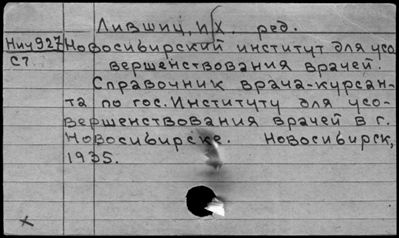 Лившиц, И.Х. ред.
Нич927 Новосибирский институт для усо-
С7 вершенствования врачей.
Справочник врача-курсан-
та по гос. Институту для усо-
вершенствования врачей в г.
Новосибирске. Новосибирск,
1935.
x